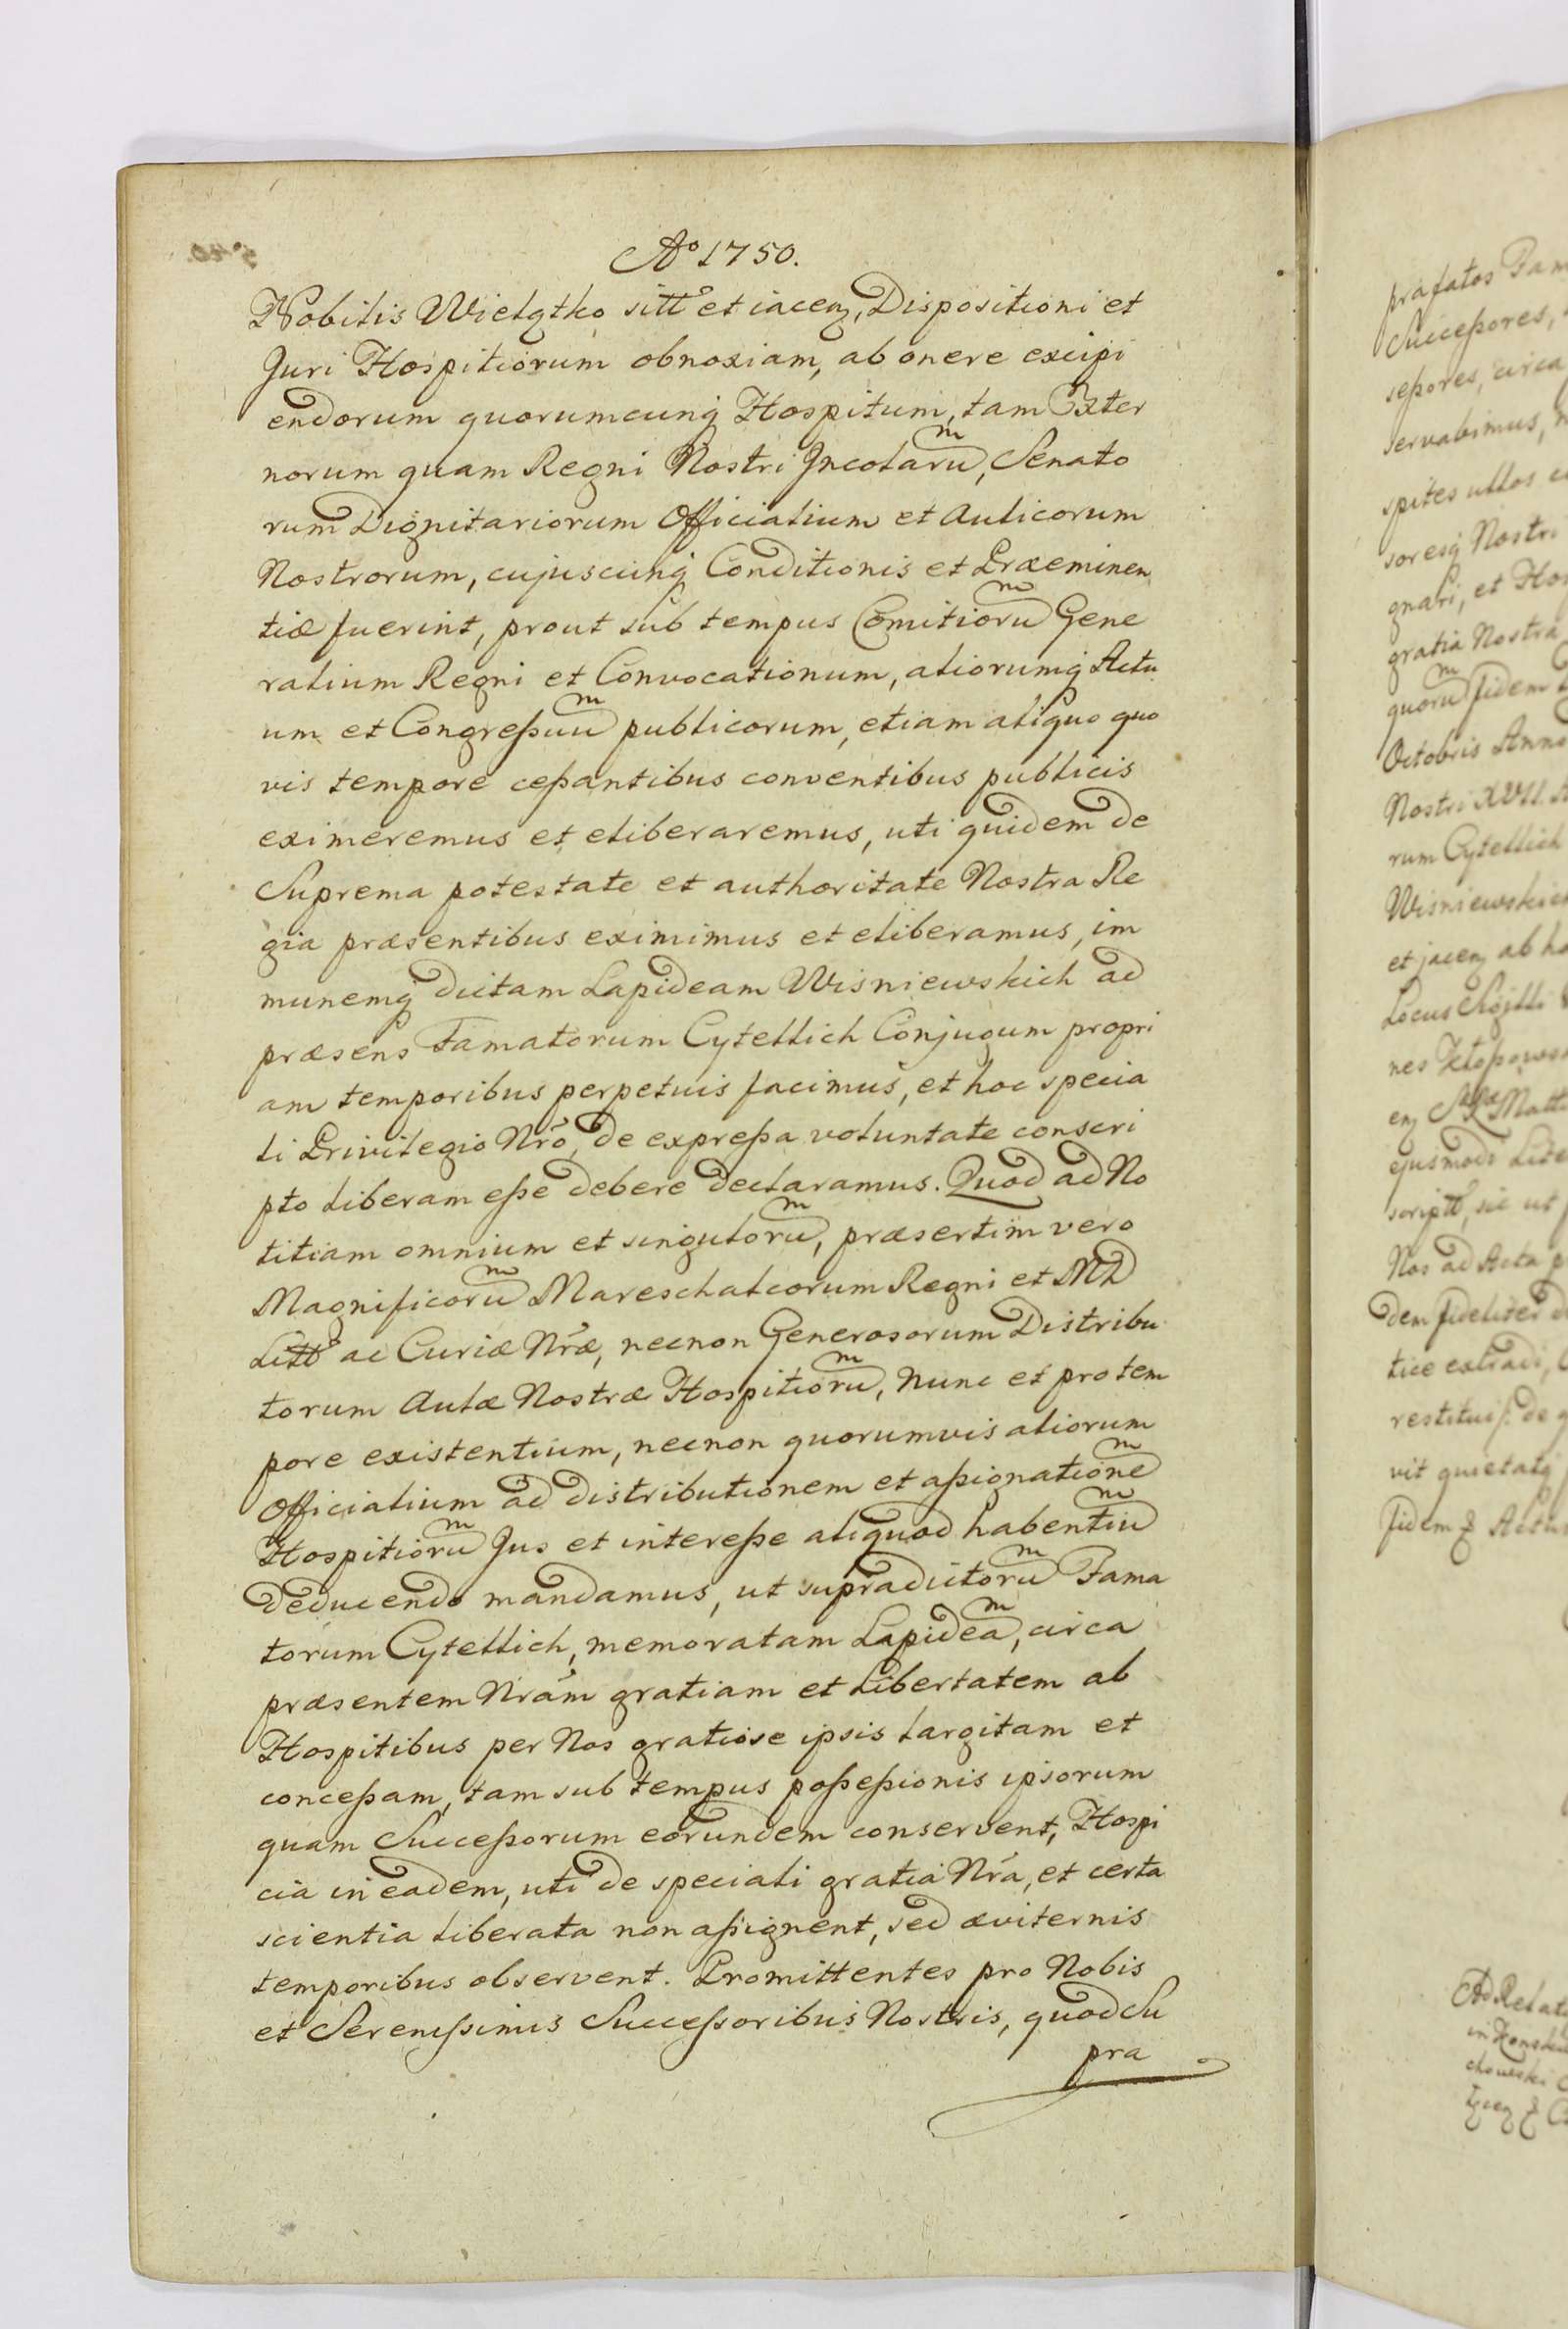 Aº 1750.
Nobilis Wielgtko sitt et iacen, Dispositioni et
Juri Hospitiorum obnoxiam, ab onere excipi
endorum quorumcunq Hospitum, tam Exter
norum quam Regni Nostri Incolarum, Senato
rum Dignitariorum Officialium et Aulicorum
Nostrorum, cujuscunq Conditionis et Præeminen
tiæ fuerint, prout sub tempus Comitiorum Gene
ralium Regni et Convocationum, aliorumq Actu
um et Congreßuum publicorum, etiam aliquo quo
vis tempore ceßantibus conventibus publicis
eximeremus et eliberaremus, uti quidem de
Suprema potestate et authoritate Nostra Re
gia præsentibus eximimus et eliberamus, im
munemq dictam Lapideam Wisniewskich ad
præsens Famatorum Cytellich Conjugum propri
am temporibus perpetuis facimus, et hoc specia
li Privilegio Nrõ, de expreßa voluntate conscri
pto liberam eße debere declaramus. Quod ad No
titiam omnium et singulorum, præsertim vero
Magnificorum Mareschalcorum Regni et MD
Litt ac Curiæ Nræ, necnon Generosorum Distribu
torum Aulæ Nostræ Hospitiorum, nunc et pro tem
pore existentium, necnon quorumvis aliorum
Officialium ad distributionem et aßignationem
Hospitiorum Jus et intereße aliquod habentium
deducendo mandamus, ut supradictorum Fama
torum Cytellich, memoratam Lapideam, circa
præsentem Nram gratiam et Libertatem ab
Hospitibus per Nos gratiose ipsis largitam et
conceßam, tam sub tempus poßeßionis ipsorum
quam Succeßorum eorundem conservent, Hospi
cia in eadem, uti de speciali gratia Nra, et certa
scientia liberata non aßignent, sed æviternis
temporibus observent. Promittentes pro Nobis
et Serenißimis Succeßoribus Nostris, quod Su
pra
præfatos Fam
Succeßores,
seßores, circa
servabimus,
spites ullos
soresq Nostri
gnari, et Hos
gratia Nostra
quorum fidem
Octobris Anno
Nostri XVII.
rum Cytellich
Wisniewskich
et jacen ab
Locus Sigilli
ejusmodi Lite
sic ut
Nos ad Acta
dem fideliter
tice extradi,
de
vit quietatq
fidem
Ad Relat